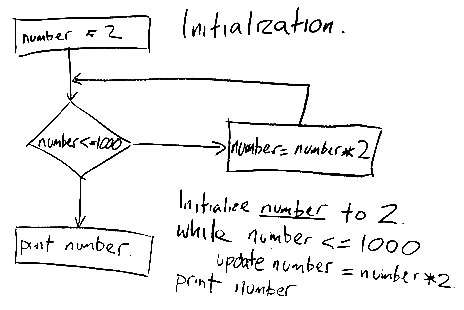 number = 2
Initialization.
number<=1000
number = number * 2
print number.
Initialise number to 2.
while number <= 1000
update number = number * 2.
print number